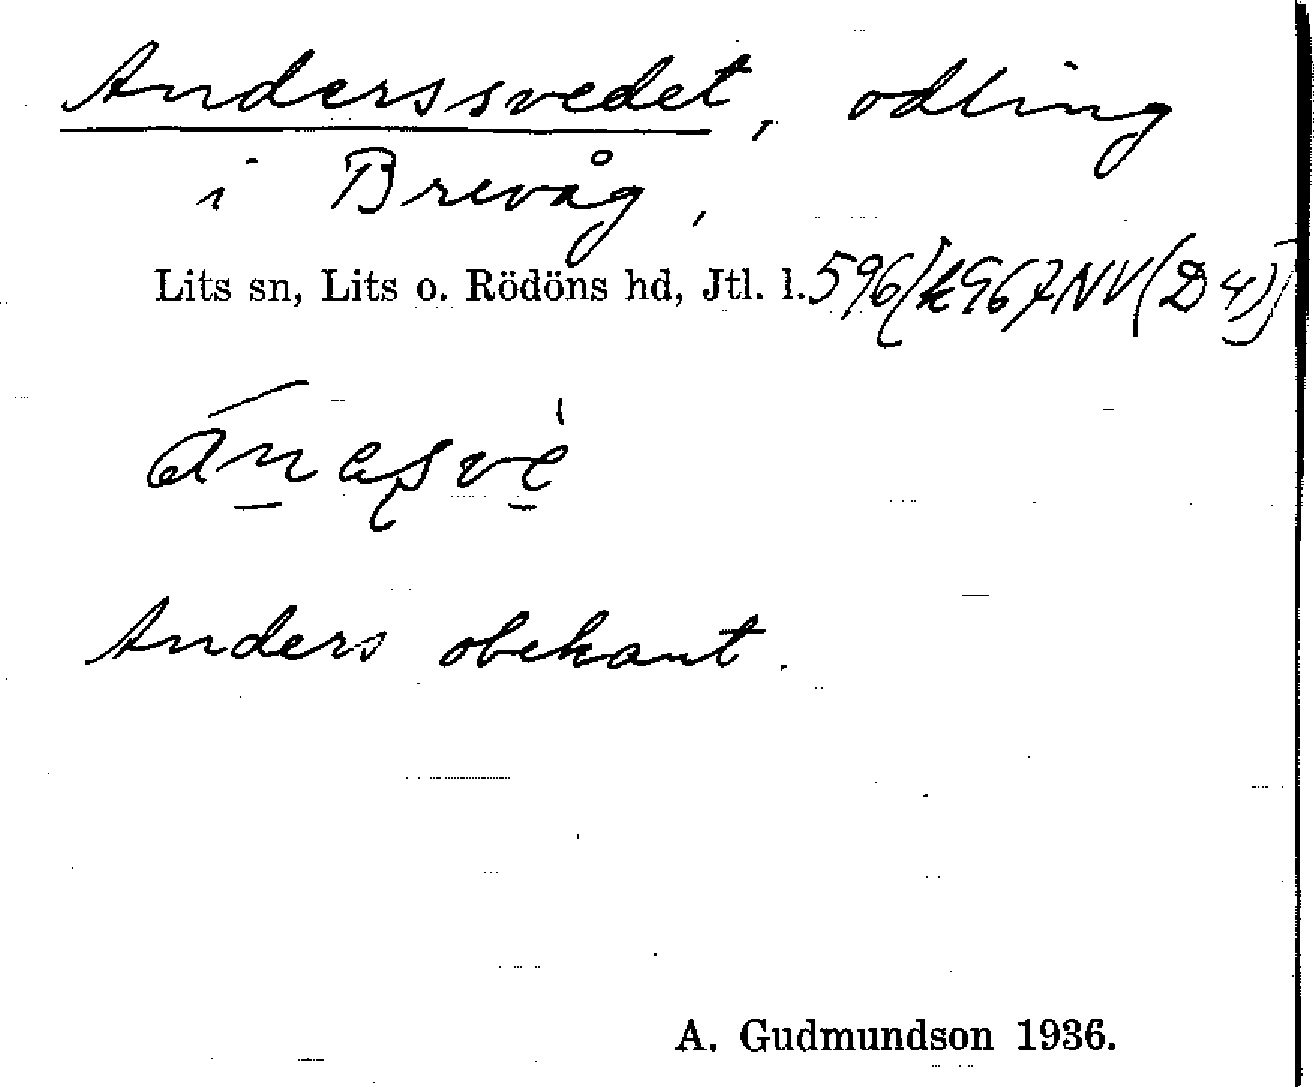 Anderssvedet, odling
i Brevåg,
Lits sn, Lits o. Rödöns hd, Jtl. l. 596/k967NV(D4)
Anders obekant.
A. Gudmundson 1936.